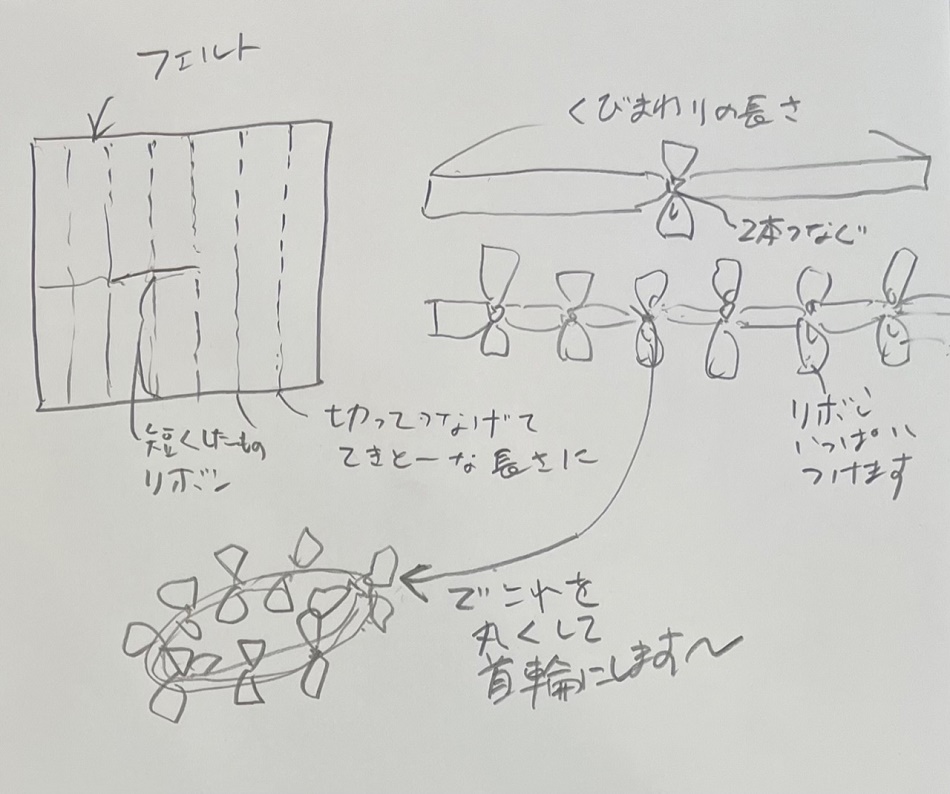 フェルト
くびまわりの長さ
2本つなぐ
切ってつなげて
てきとーな長さに
短くしたもの
リボン
リボン
いっぱい
つけます
でこれを
丸くして
首輪にします〜